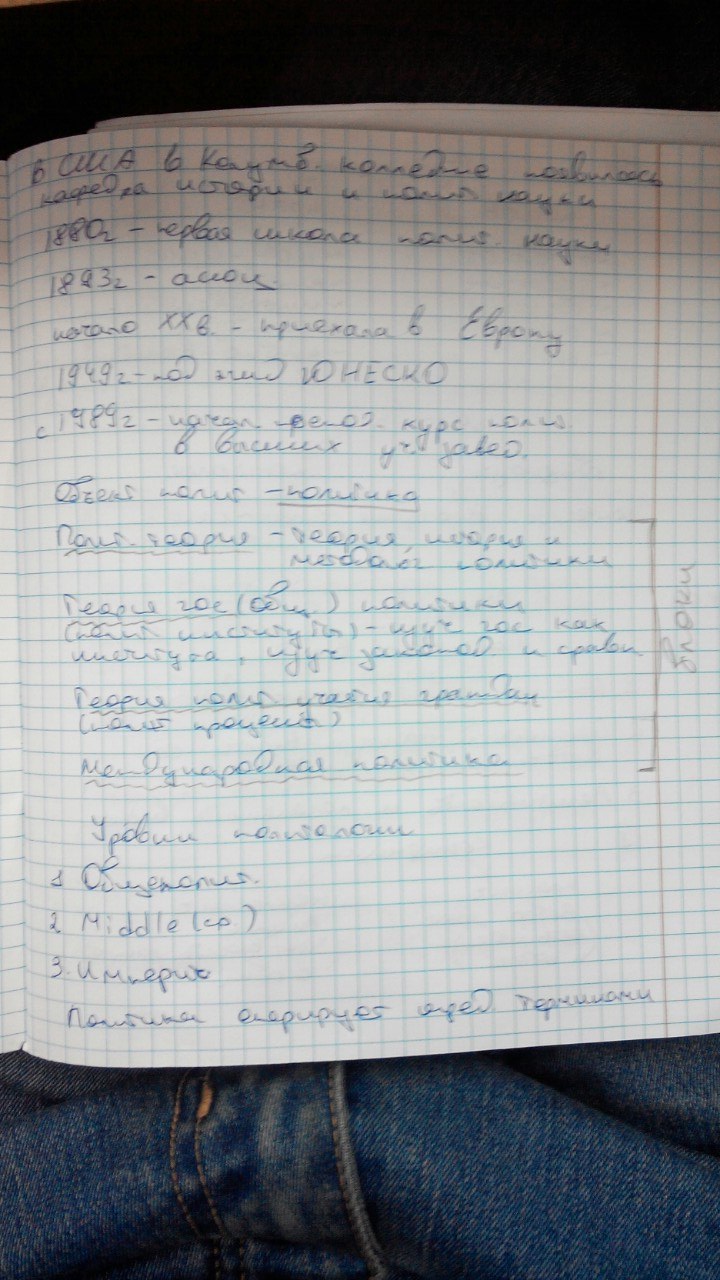 В США в Колумб. колледже появилась
кафедра истории и полит науки
1880г – первая школа полит. науки
– ассоц
начало XX в. – приехала в Европу
1949г – под эгид ЮНЕСКО
с 1989г – начал. курс полит.
в высших уч завед.
Объект полит – политика
Полит. теория – теория, история и
методолог политики
Теория гос (общ) политики
(полит институты) – изуч гос как
института, изуч законов и сравн.
Теория полит участия граждан
(полит процессы)
Международная политика
блоки
Уровни политологии
1 Общеполит.
2. Middle (ср.)
3. Империч
Политика оперирует опред терминами